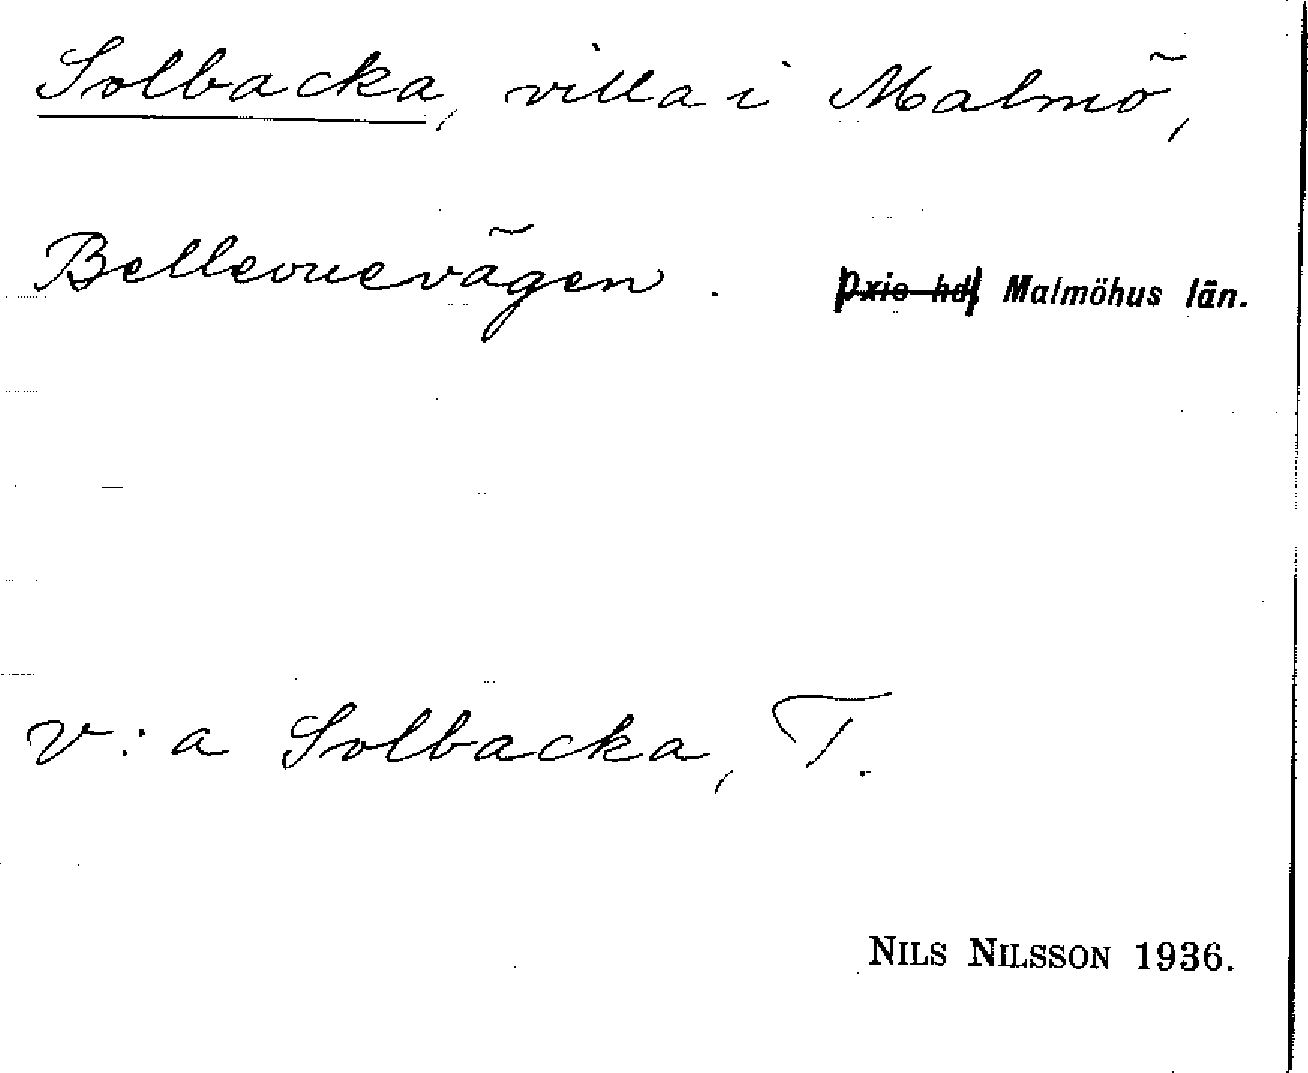 Solbacka, villa i Malmö,
Bellevuevägen. Oxie hd, Malmöhus län.
v:a Solbacka, T.
NILS NILSSON 1936.